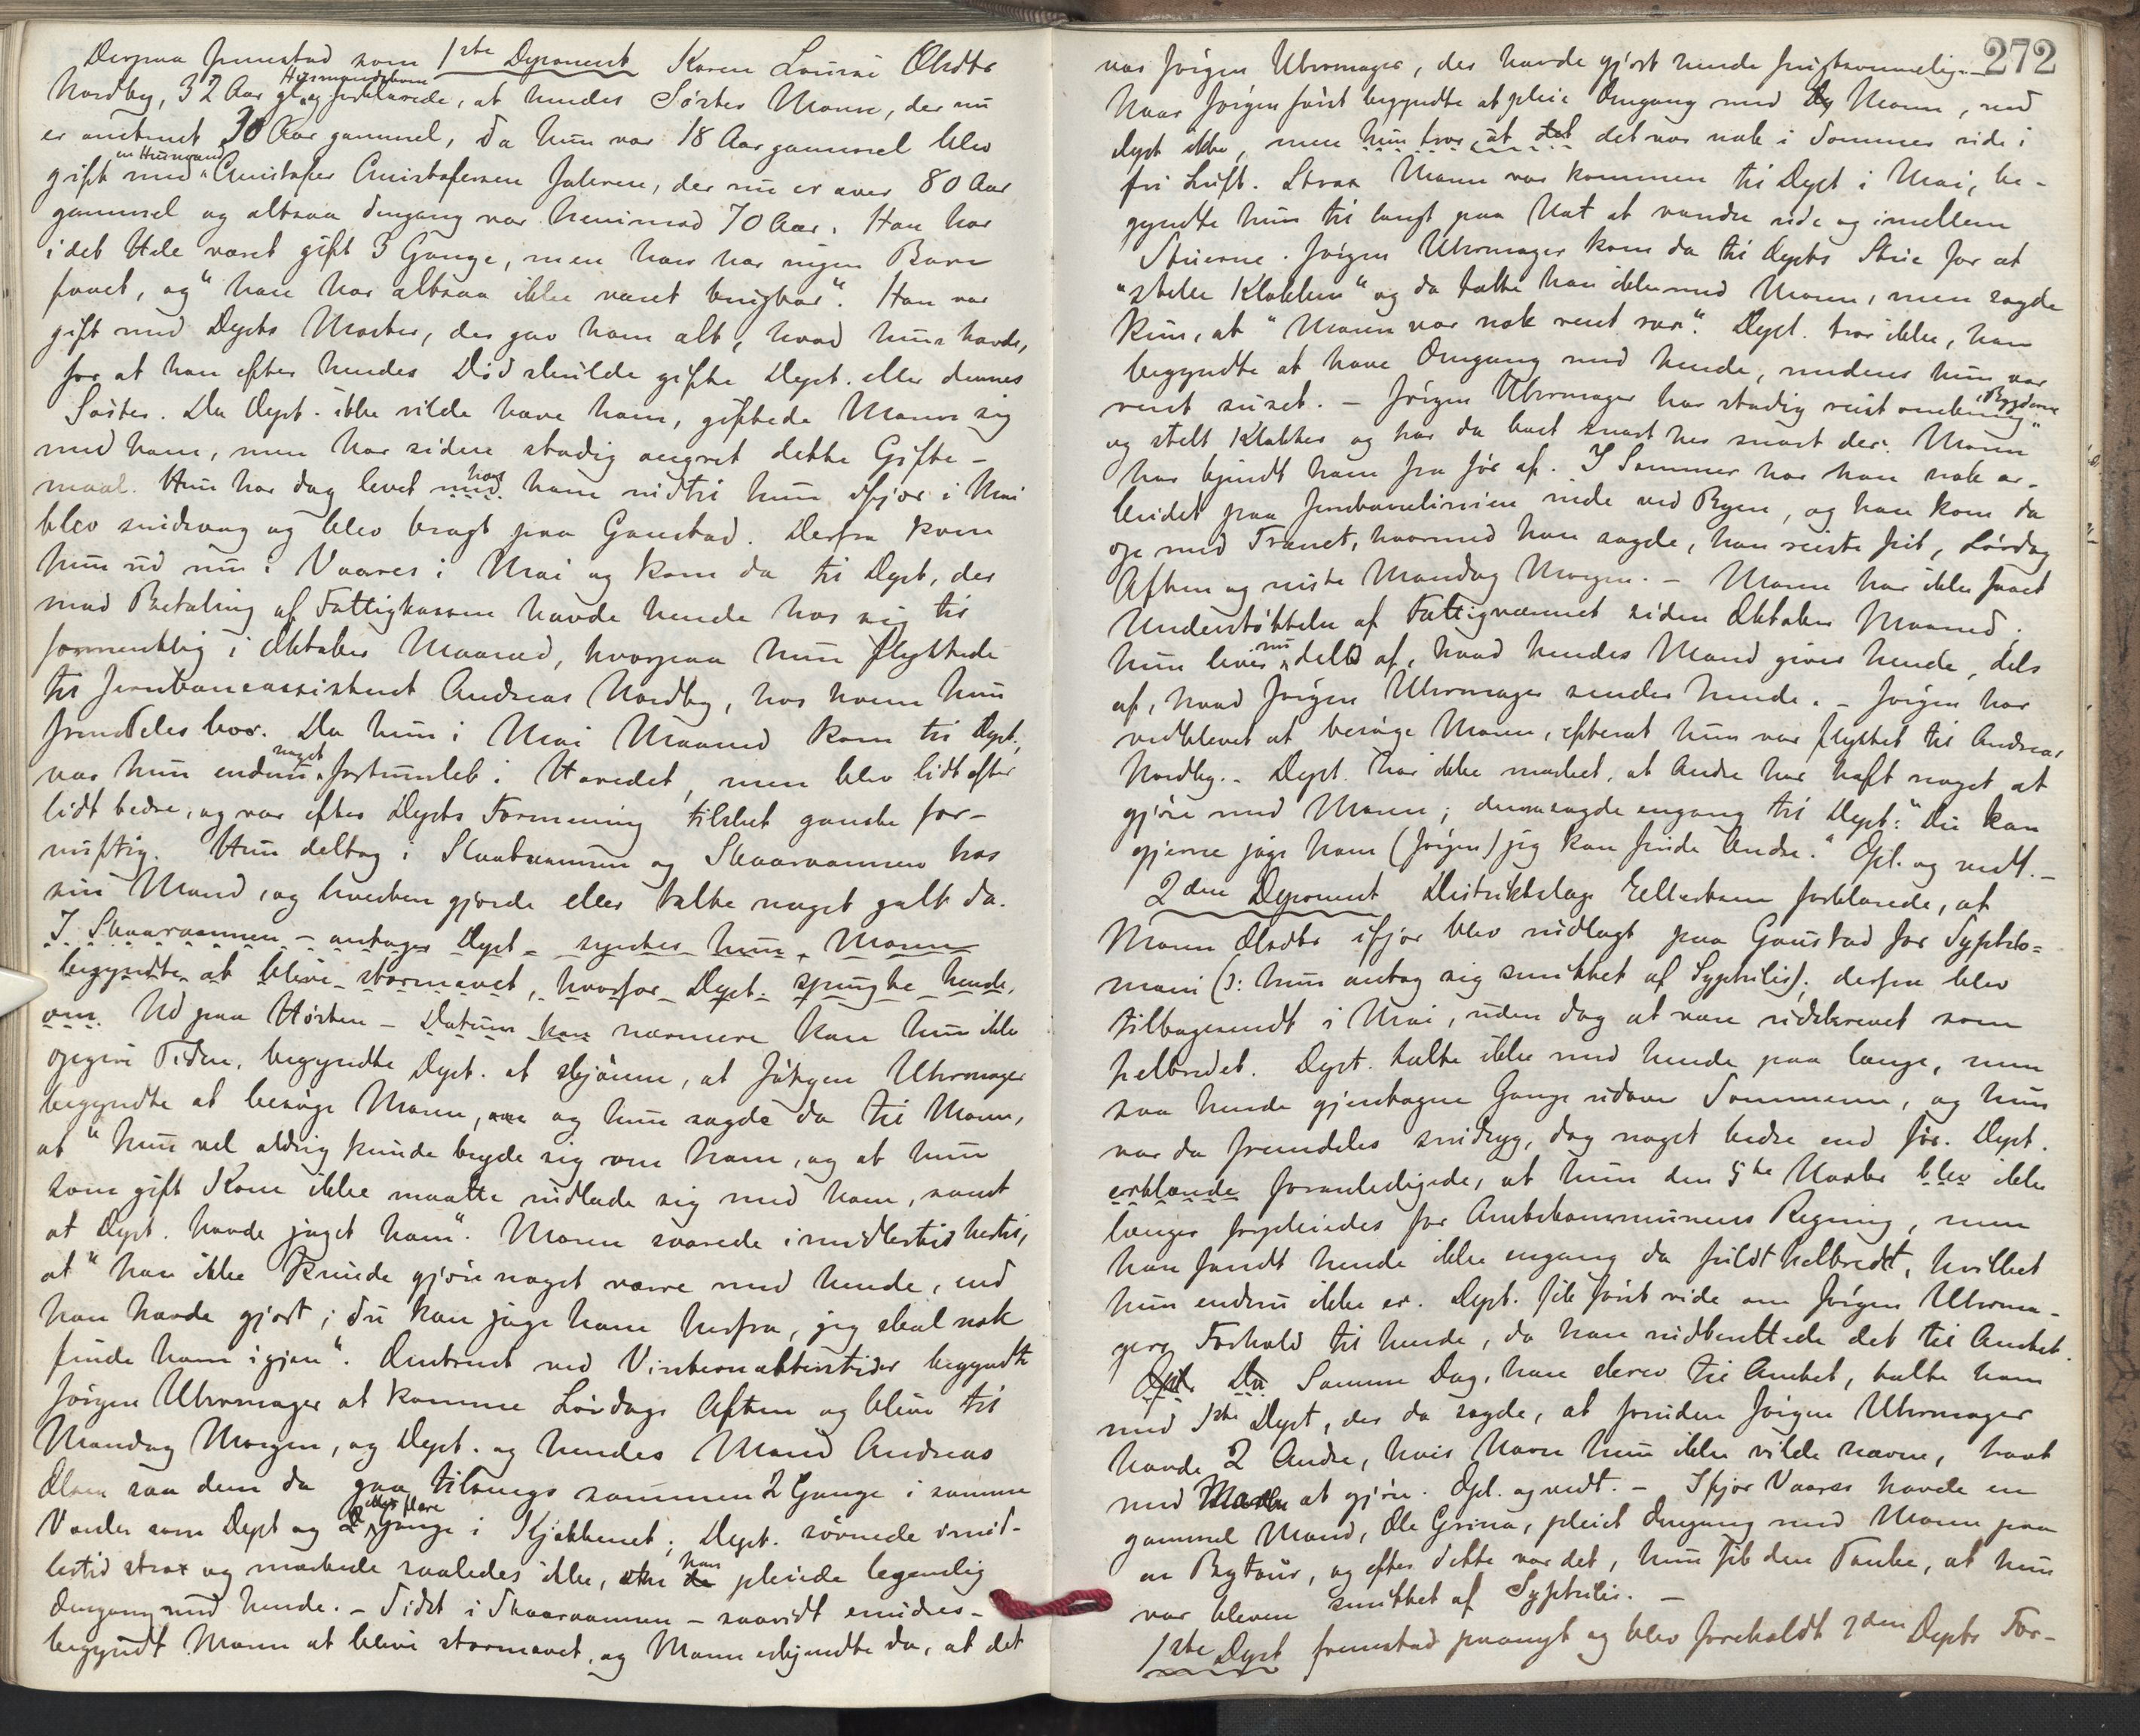 Derpaa fremstod som 1ste Deponent Karen Lovise Olsdtr
Nordby, 32 Aar gl. Husmandskone og forklarede, at hendes Søster Maren, der nu
er omtrent 30 Aar gammel, da hun var 18 Aar gammel blev
gift med en Husmand Christofer Christofersen Jahren, der nu er over 80 Aar
gammel og altsaa dengang var henimod 70 Aar. Han har
i det Hele været gift 3 Gange, men han har ingen Barn
faaet, og "han har altsaa ikke været brugbar". Han var
gift med Depts Moster, der gav ham alt, hvad hun havde,
for at han efter hendes Død skulde gifte Dept. eller dennes
Søster. Da Dept. ikke vilde have ham, giftede Maren sig
med ham, men har siden stadig angret dette Gifte-
maal. Hun har dog levet med hos ham indtil hun ifjor i Mai
blev sindsvag og blev bragt paa Gaustad. Derfra kom
hun ud nu i Vaares i Mai og kom da til Dept, der
mod Betaling af Fattigkassen havde hende hos sig til
formentlig i Oktober Maaned, hvorpaa hun flyttede
til Jernbaneassistent Andreas Nordby, hos hvem hun
fremdeles bor. Da hun i Mai Maaned kom til Dept,
var hun endnu noget fortumlet i Hovedet, men blev lidt efter
lidt bedre, og var efter Depts Formening tilslut ganske for-
nuftig. Hun deltog i Slaataannen og Skuraannen hos
sin Mand, og hverken gjorde eller talte noget galt da.
I Skuraannen – antager Dept – syntes hun, Maren
begyndte at blive stormavet, hvorfor Dept. spurgte hende
om. Ud paa Høsten – Datum kan nærmere kan hun ikke
opgive Tiden, begyndte Dept. at skjønne, at Jørgen Uhrmager
begyndte at besøge Maren, og hun sagde da til Maren,
at "hun vel aldrig kunde bryde sig om ham, og at hun
som gift Kone ikke maatte indlade sig med ham, samt
at Dept. havde jaget ham". Maren svarede imidlertid hertil,
at "han ikke kunde gjøre noget værre med hende, end
han havde gjort; du kan jage ham herfra, jeg skal nok
finde ham igjen". Omtrent ved Vinternattenstider begyndte
Jørgen Uhrmager at komme Lørdags Aften og blive til
Mandag Morgen, og Dept. og hendes Mand Andreas
Olsen saa dem da gaa tilsengs sammen 2 Gange i samme
Værelse som Dept og 2 eller flere Gange i Kjøkkenet; Dept. sovnede imid-
lertid strax og mærkede saaledes ikke, om han pleiede legemlig
Omgang med hende. – Sidst i Skuraannen – saavidt erindres –
begyndt Maren at blive stormavet, og Maren erkjendte da, at det
272
var Jørgen Uhrmager, der havde gjort hende frugtsommelig.
Naar Jørgen først begyndte at pleie Omgang med Maren, ved
Dept ikke, men hun tror, at det det var nok i Sommer ude i
fri Luft. Strax Maren var kommen til Dept i Mai, be-
gyndte hun til langt paa Nat at vandre ude og imellem
Stuerne. Jørgen Uhrmager kom da til Depts Stue for at
"stelle Klokken" og da talte han ikke med Maren, men sagde
kun, at "Maren var nok rent rar". Dept. tror ikke, han
begyndte at have Omgang med hende, medens hun var
rent suset. – Jørgen Uhrmager har stadig reist omkring i Bygderne
og stelt Klokker og har da boet snart her snart der. Maren
har kjendt ham fra før af. I Sommer har han nok ar-
beidet paa Jernbanelinien inde ved Byen, og han kom da
op med Trænet, hvormed han sagde, han reiste frit, Lørdag
Aften og reiste Mandag Morgen. – Maren har ikke faaet
Understøttelse af Fattigvæsenet siden Oktober Maaned;
hun lever nu dels af, hvad hendes Mand giver hende, dels
af, hvad Jørgen Uhrmager sender hende. – Jørgen har
vedblevet at besøge Maren, efterat hun var flyttet til Andreas
Nordby. – Dept. har ikke mærket, at Andre har haft noget at
gjøre med Maren; denne sagde engang til Dept: "Du kan
gjerne jage ham (Jørgen) jeg kan finde Andre." Opl. og vedt. –
2den Deponent Distriktslæge Ellertsen forklarede, at
Maren Olsdtr ifjor blev indlagt paa Gaustad for Syphilo-
mani (ɔ: hun antog sig smittet af Syphilis); derfra blev
tilbagesendt i Mai, uden dog at være udskrevet som
helbredet. Dept. talte ikke med hende paa længe, men
saa hende gjentagne Gange udover Sommeren, og hun
var da fremdeles sindssyg, dog noget bedre end før. Dept.
erklærede foranledigede, at hun den 5te Marts blev ikke
længer forpleiedes for Amtskommunens Regning, men
han fandt hende ikke engang da fuldt helbredt, hvilket
hun endnu ikke er. Dept. fik først vide om Jørgen Uhrma-
gers Forhold til hende, da han indberettede det til Amtet.
Opl. Da Samme Dag, han skrev til Amtet, talte han
med 1ste Dept, der da sagde, at foruden Jørgen Uhrmager
havde 2 Andre, hvis Navn hun ikke vilde nævne, havt
med Maren at gjøre. Opl. og vedt. – Ifjor Vaares havde en
gammel Mand, Ole Grina, pleiet Omgang med Maren paa
en Bytour, og efter dette var det, hun fik den Tanke, at hun
var bleven smittet af Syphilis. –
1ste Dept fremstod paanyt og blev foreholdt 2den Depts For-